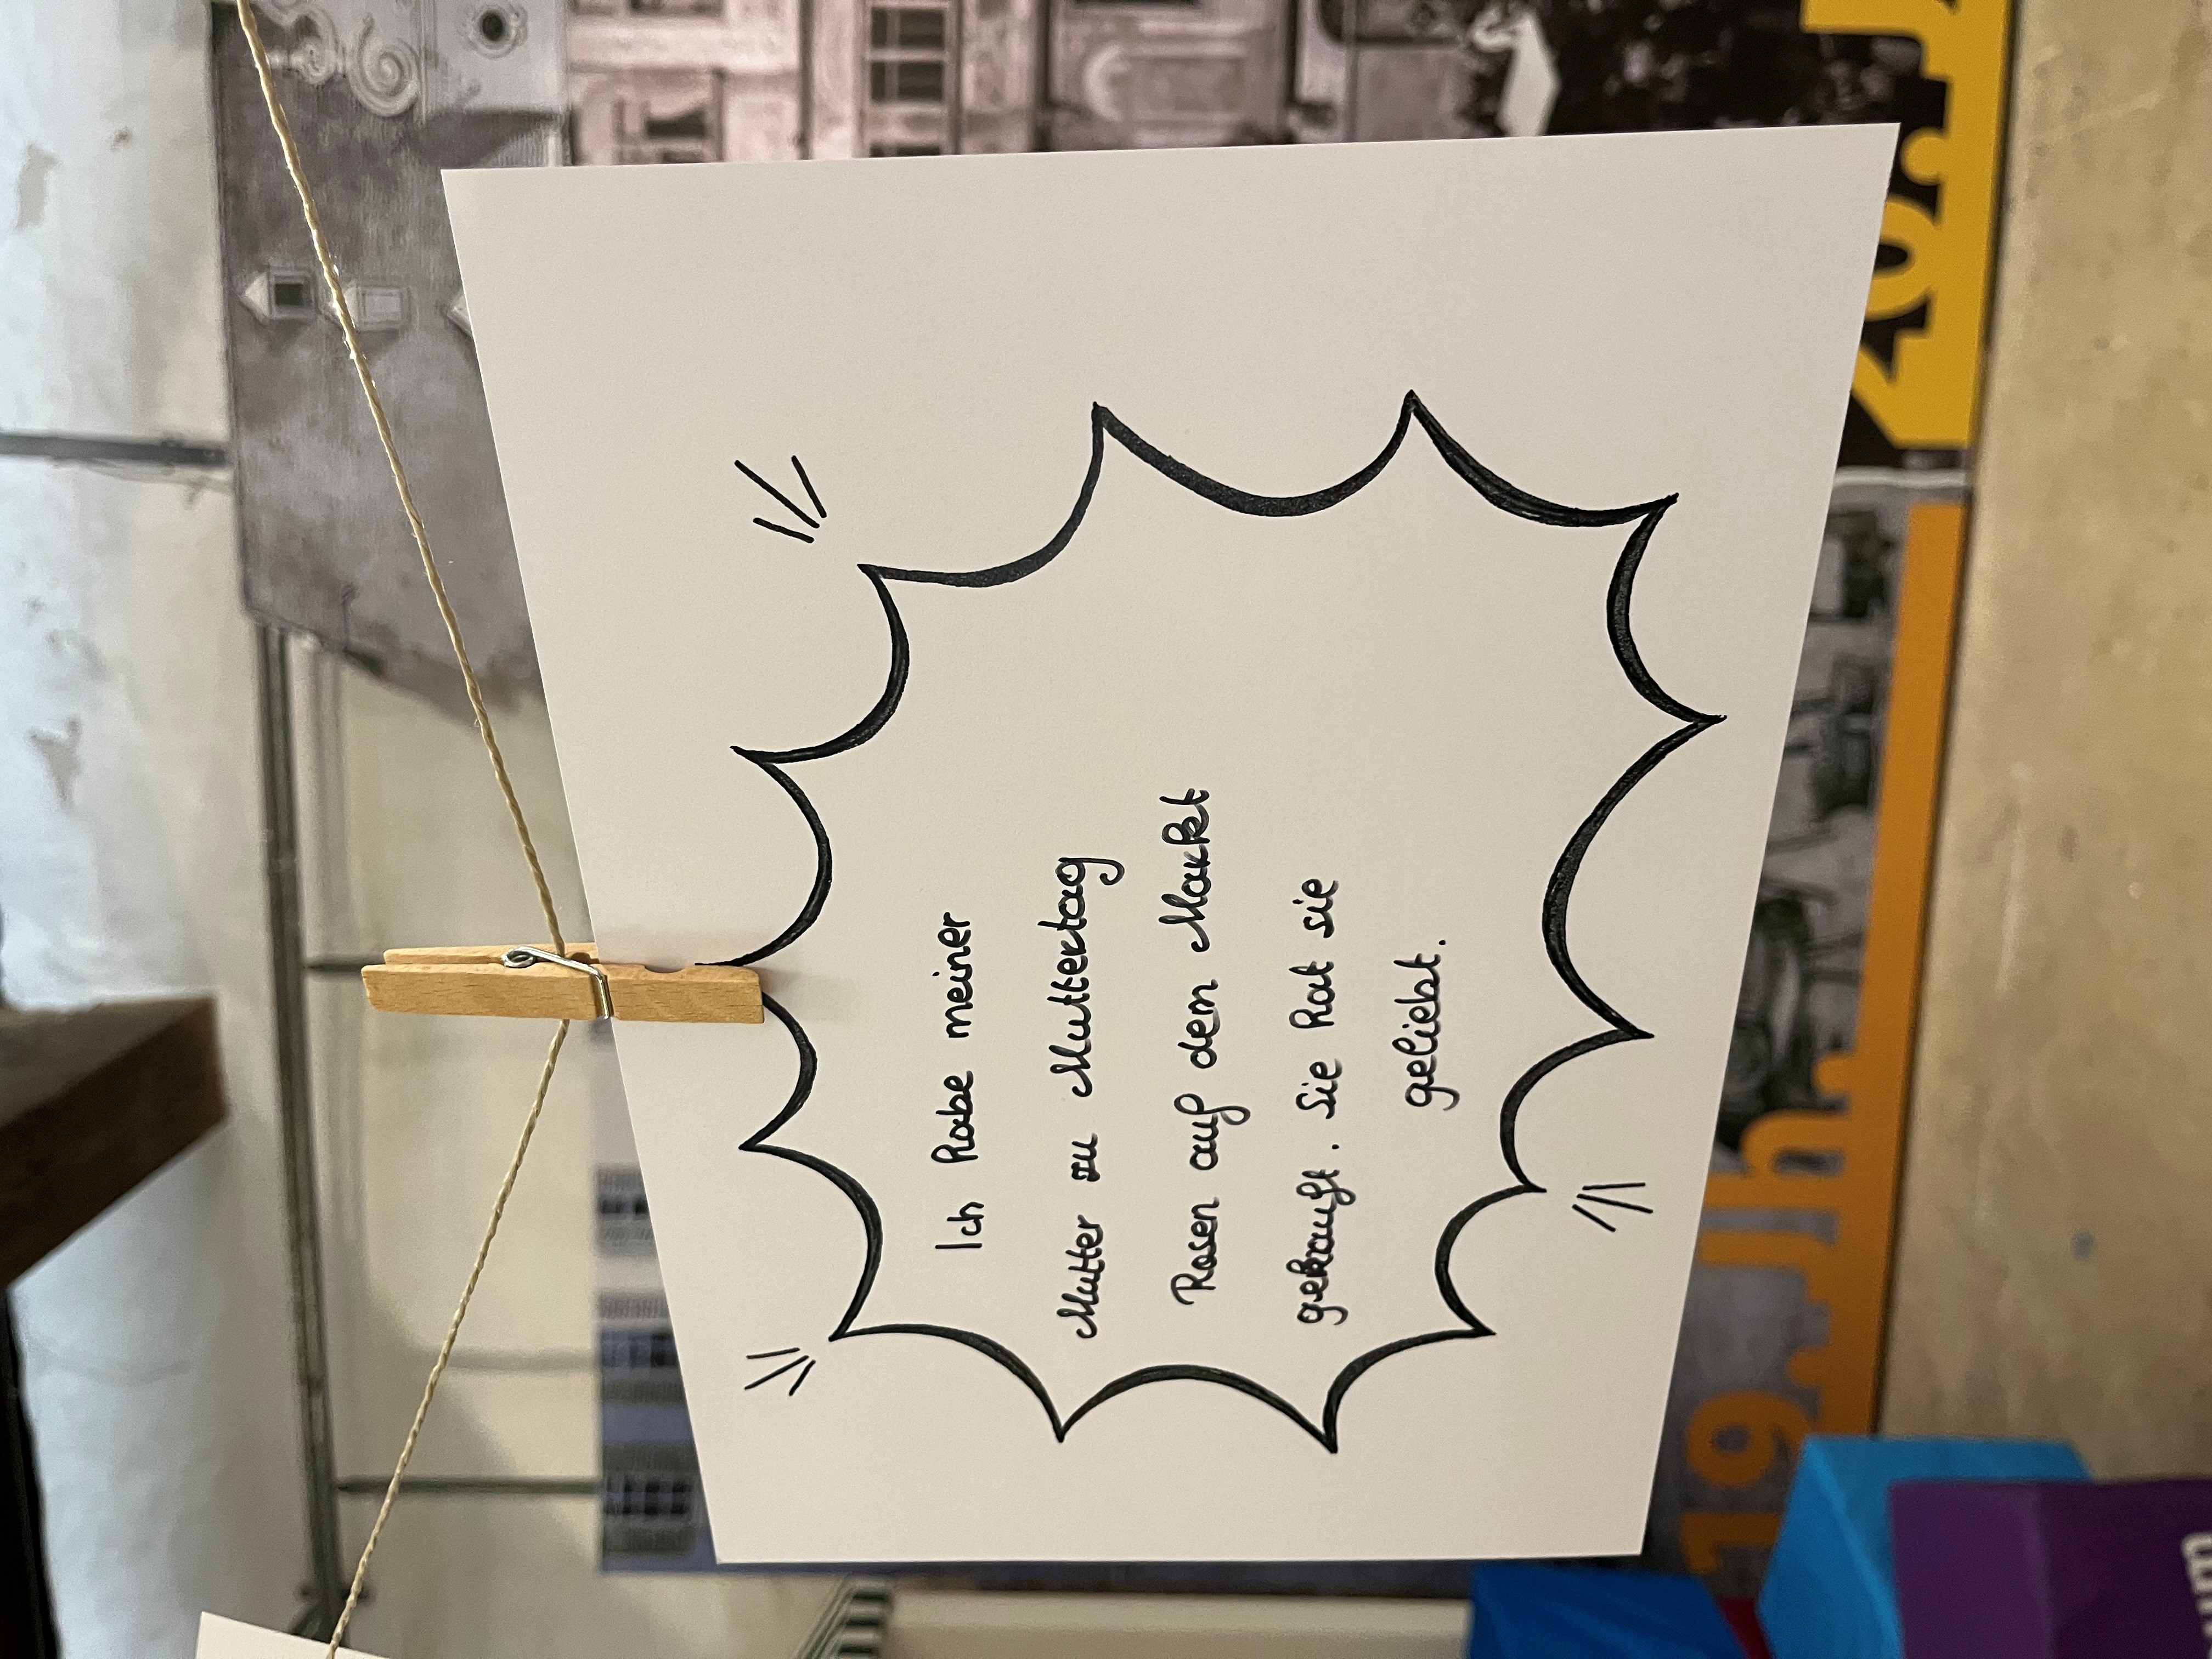 Ich habe meiner
Mutter zu Muttertag
Rosen auf dem Markt
gekauft. Sie hat sie
geliebt.
19. Jh
20. J